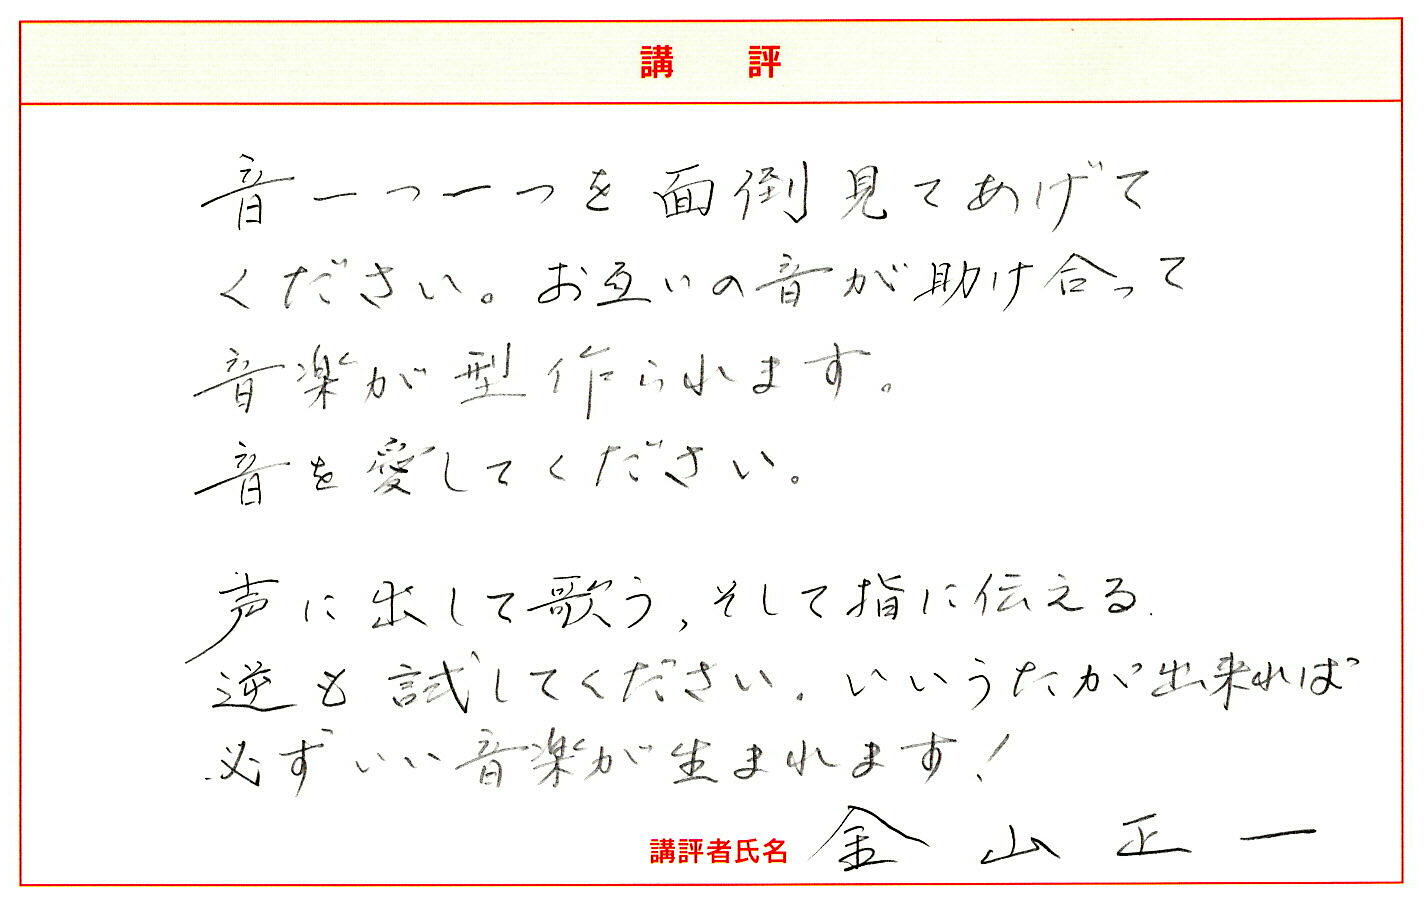 講評
音一つ一つを面倒見てあげて
ください。お互いの音が助け合って
音楽が型作られます。
音を愛してください。
声に出して歌う,そして指に伝える.
逆も試してください.いいうたが出来れば
必ずいい音楽が生まれます!
講評者氏名 金山正一